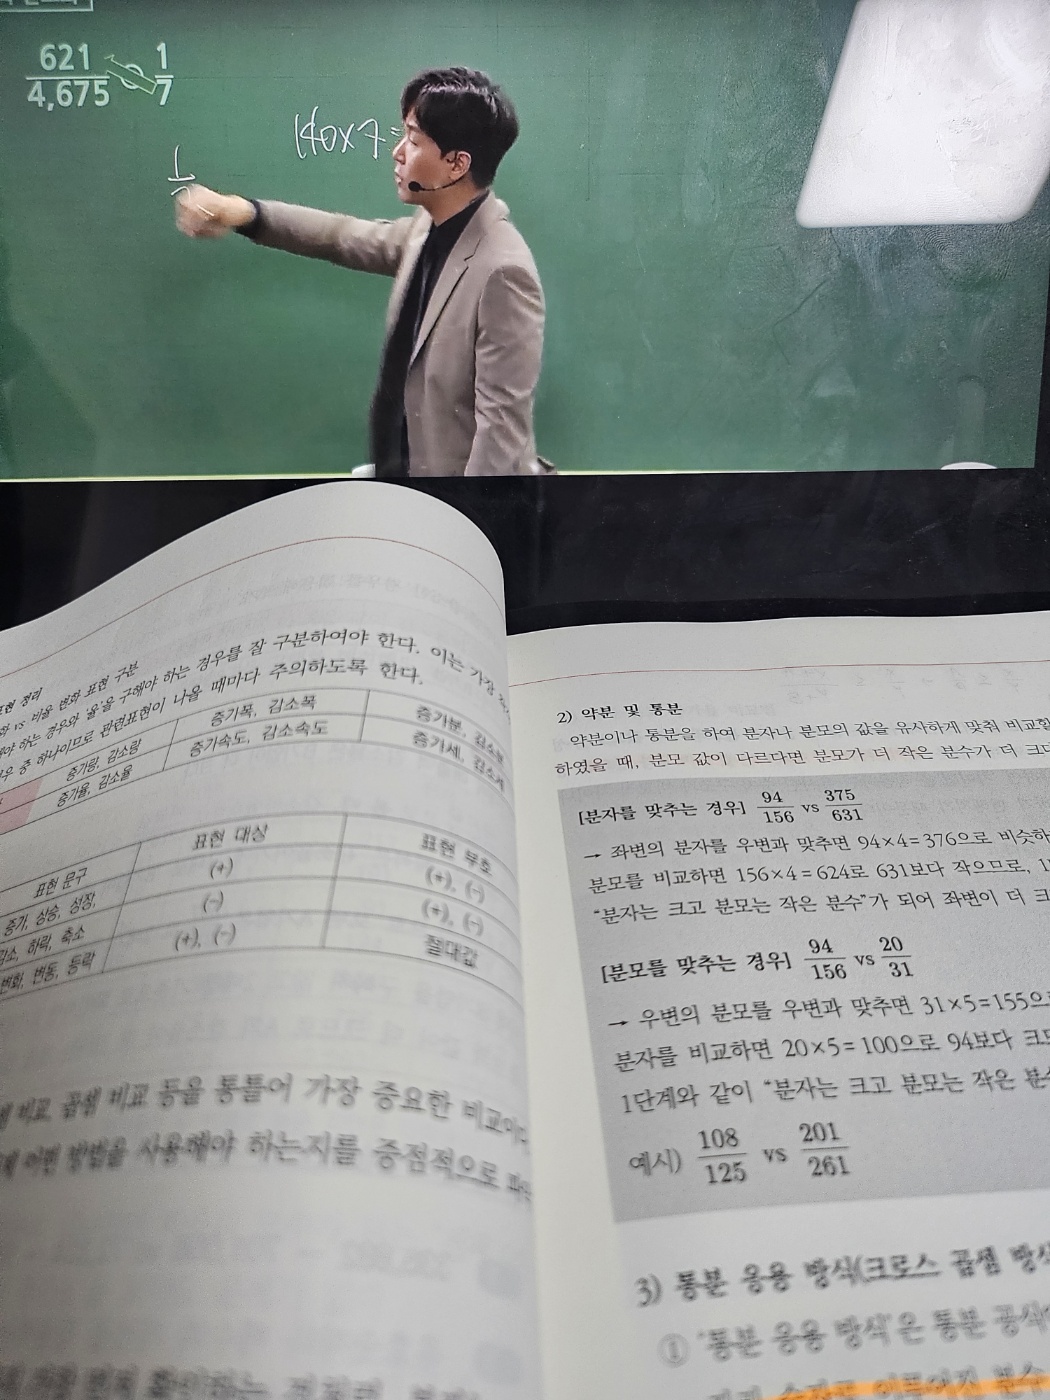 621
4,675
1
7
140×7=
1
표현 정리
vs 비율 변화 표현 구분
해야 하는 경우와 '율'을 구해야 하는 경우를 잘 구분하여야 한다. 이는 가장
중 하나이므로 관련표현이 나올 때마다 주의하도록 한다.
증가량, 감소량 증가폭, 감소폭 증가분, 감소분
증가율, 감소율 증가속도, 감소속도 증가세, 감소세
표현 문구 표현 대상 표현 부호
증가, 상승, 성장, (+) (+), (-)
감소, 하락, 축소 (-) (+), (-)
변화, 변동, 등락 (+), (-) 절대값
비교, 곱셈 비교 등을 통틀어 가장 중요한 비교이다.
어떤 방법을 사용해야 하는지를 중점적으로
2) 약분 및 통분
약분이나 통분을 하여 분자나 분모의 값을 유사하게 맞춰 비교할
하였을 때, 분모 값이 다르다면 분모가 더 작은 분수가 더 크다
[분자를 맞추는 경우] 94/156 vs 375/631
→ 좌변의 분자를 우변과 맞추면 94×4=376으로 비슷하
분모를 비교하면 156×4=624로 631보다 작으므로,
"분자는 크고 분모는 작은 분수"가 되어 좌변이 더 크
[분모를 맞추는 경우] 94/156 vs 20/31
→ 우변의 분모를 우변과 맞추면 31×5=155으
분자를 비교하면 20×5=100으로 94보다 크
1단계와 같이 "분자는 크고 분모는 작은 분수
예시) 108/125 vs 201/261
3) 통분 응용 방식(크로스 곱셈 방식
① '통분 응용 방식'은 통분 공식